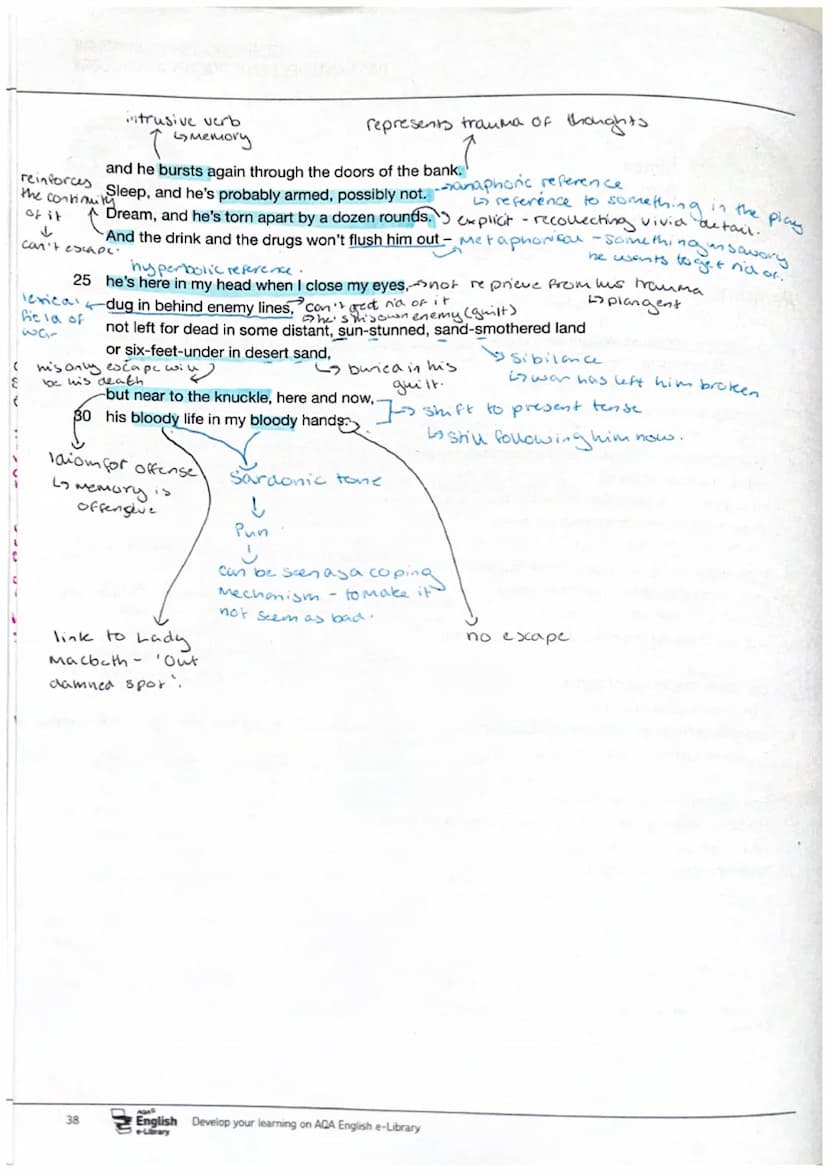 intrusive verb
↳ memory
represents trauma of thoughts
and he bursts again through the doors of the bank.
reinforces
the continuity
of it
↓
can't escape.
Sleep, and he's probably armed, possibly not.
→ anaphoric reference
↳ reference to something in the play
Dream, and he's torn apart by a dozen rounds.
explicit - recollecting vivid detail.
And the drink and the drugs won't flush him out –
metaphorical - something unsavory
he wants to get rid of.
hyperbolic reference.
25 he's here in my head when I close my eyes,
→ not reprieve from his trauma
↳ plangent
lexical
field of
war
dug in behind enemy lines,
→ can't get rid of it
→ he's his own enemy (guilt)
not left for dead in some distant, sun-stunned, sand-smothered land
or six-feet-under in desert sand,
sibilance
↳ war has left him broken
his only escape will
be his death
↳ buried in his
guilt.
but near to the knuckle, here and now,
→ shift to present tense
30 his bloody life in my bloody hands.
↳ still following him now.
Idiom for offense
↳ memory is
offensive
Sardonic tone
↓
Pun
↓
can be seen as a coping
mechanism - to make it
not seem as bad.
link to Lady
Macbeth - 'Out
damned spot'.
no escape
38
AQA
English
e-Library
Develop your learning on AQA English e-Library